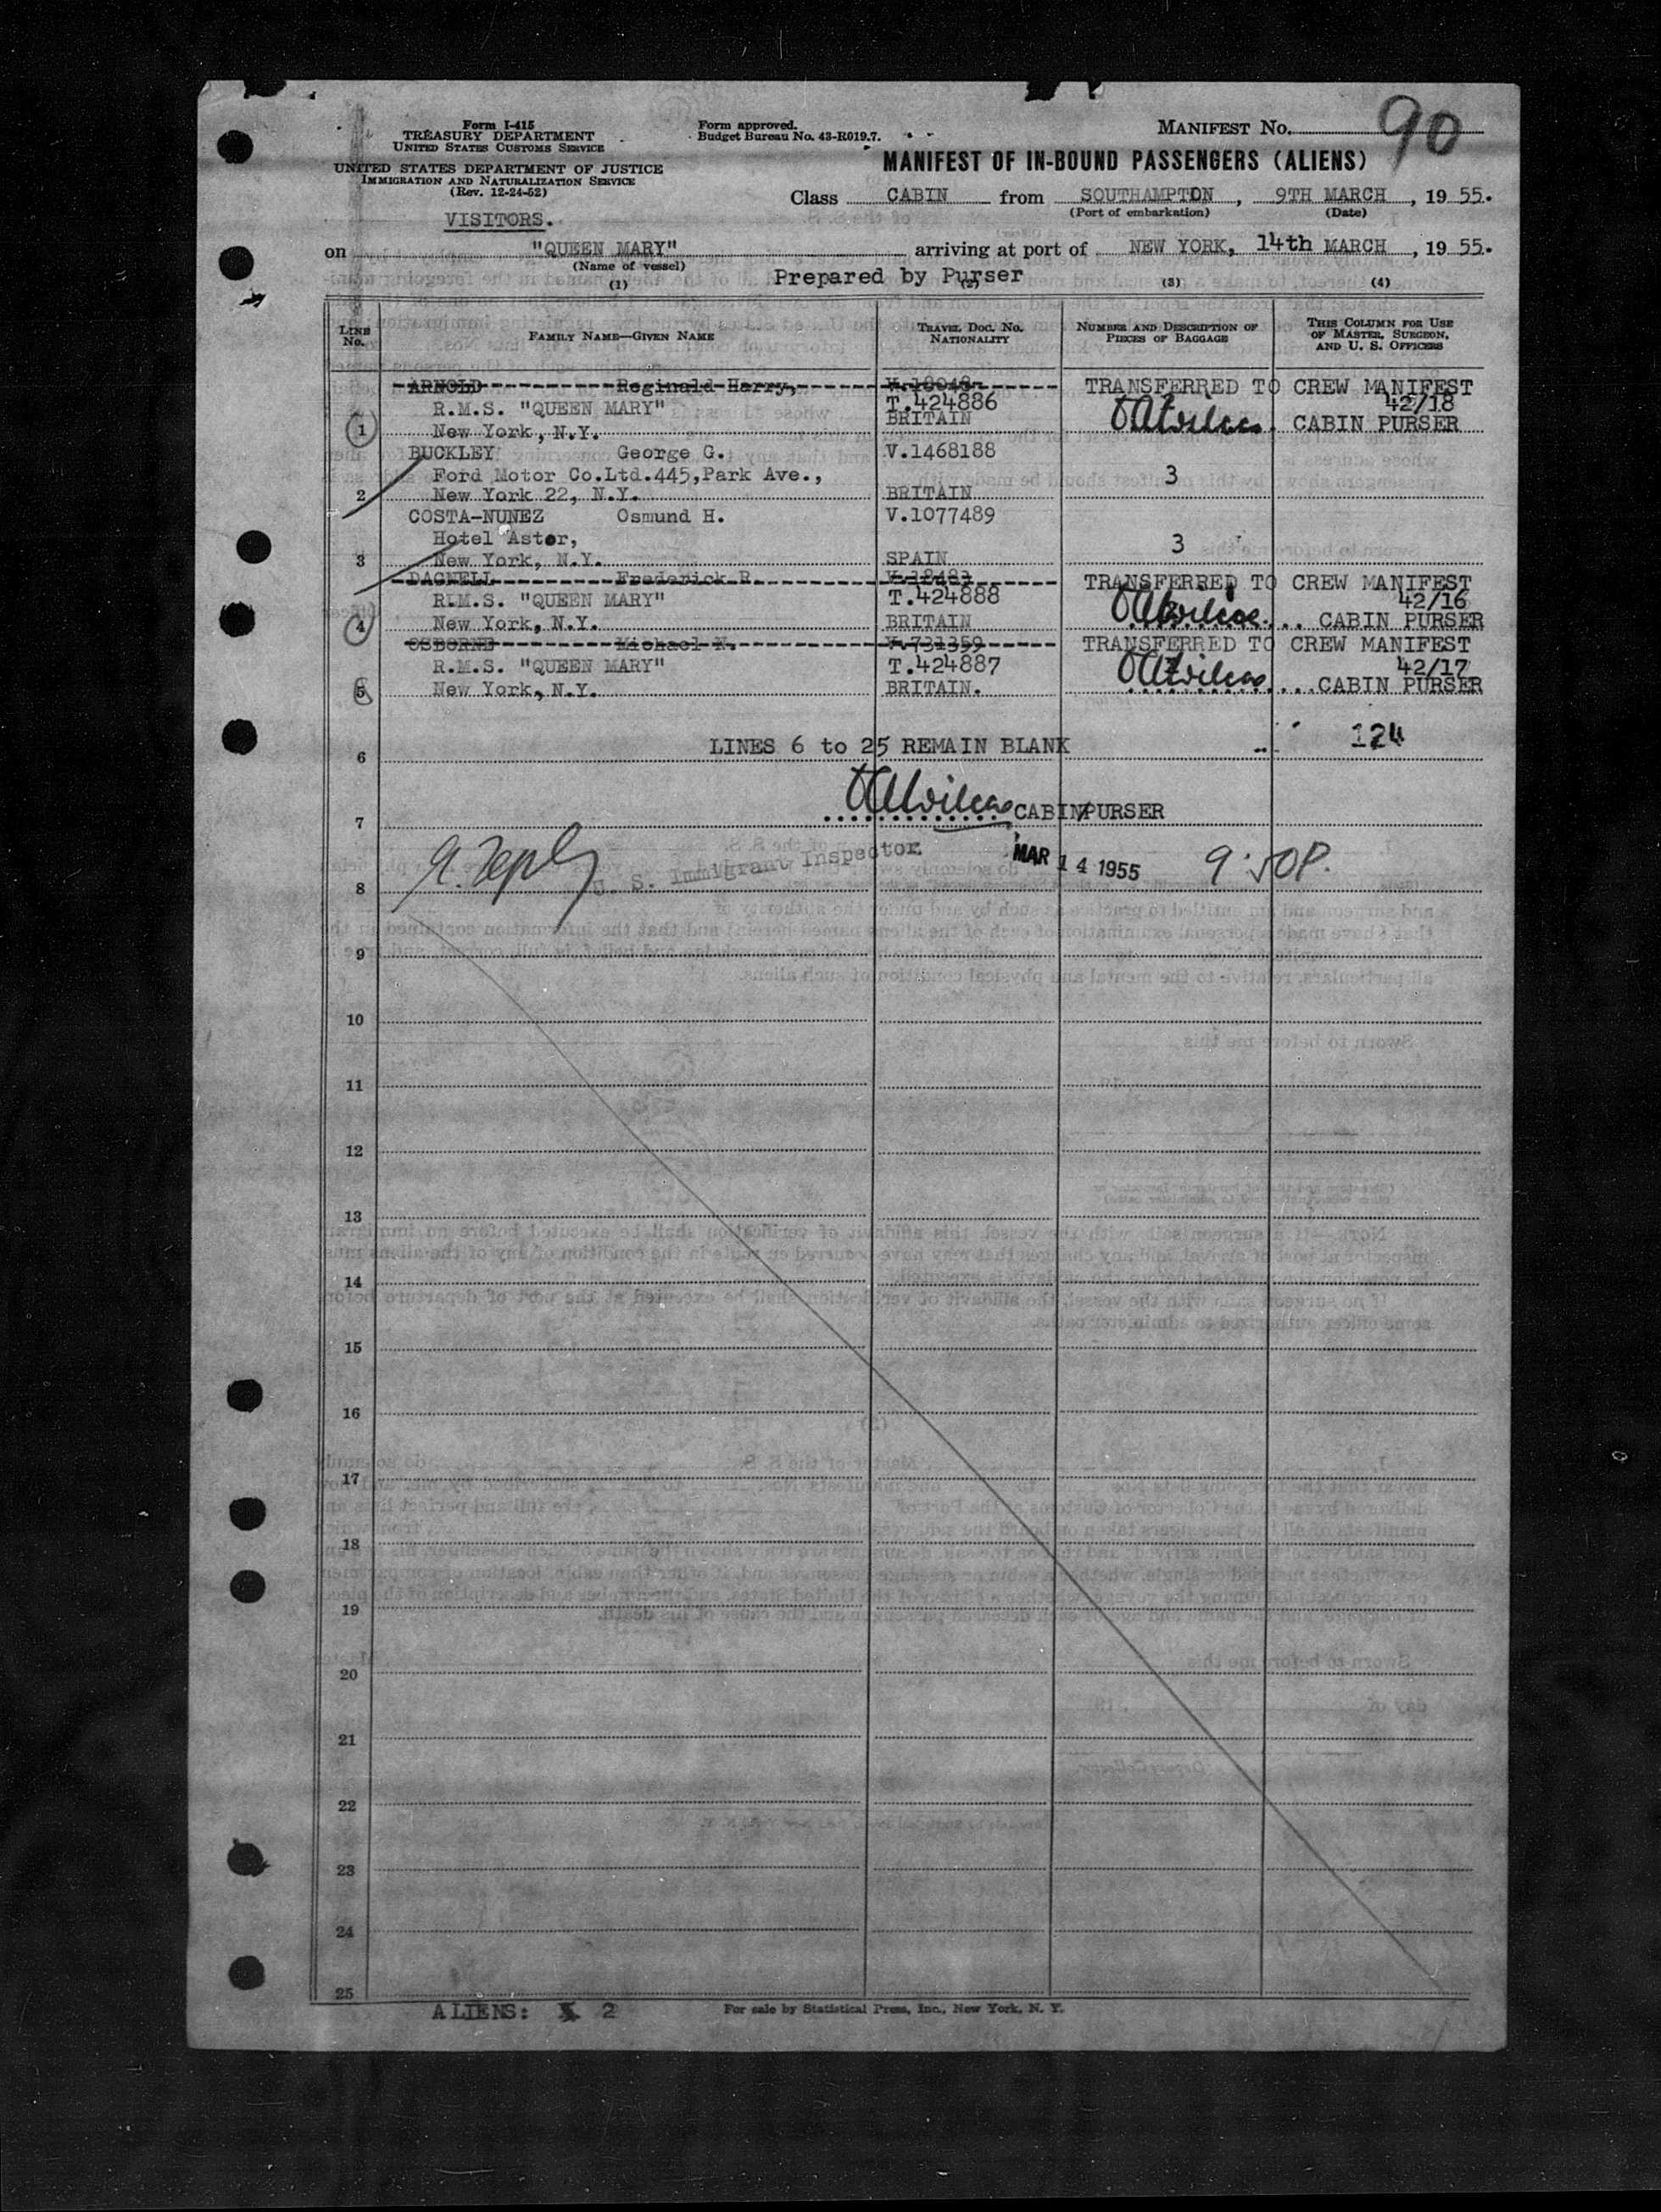 Form I-415
TREASURY DEPARTMENT
UNITED STATES CUSTOMS SERVICE
UNITED STATES DEPARTMENT OF JUSTICE
IMMIGRATION AND NATURALIZATION SERVICE
(Rev. 12-24-52)
VISITORS.
Form approved.
Budget Bureau No. 43-R019.7.
MANIFEST No. 90
MANIFEST OF IN-BOUND PASSENGERS (ALIENS)
Class CABIN from SOUTHAMPTON, 9TH MARCH, 19 55.
(Port of embarkation) (Date)
on "QUEEN MARY" arriving at port of NEW YORK, 14th MARCH, 19 55.
(Name of vessel)
Prepared by Purser
(1) (2) (3) (4)
LINE No. FAMILY NAME—GIVEN NAME TRAVEL DOC. NO. NATIONALITY NUMBER AND DESCRIPTION OF PIECES OF BAGGAGE THIS COLUMN FOR USE OF MASTER, SURGEON, AND U. S. OFFICERS
ARNOLD Reginald Harry, TRANSFERRED TO CREW MANIFEST
R.M.S. "QUEEN MARY" T.424886 42/18
1 New York, N.Y. BRITAIN CABIN PURSER
BUCKLEY George G. V.1468188
Ford Motor Co.Ltd.445,Park Ave., 3
2 New York 22, N.Y. BRITAIN
COSTA-NUNEZ Osmund H. V.1077489
Hotel Astor, 3
3 New York, N.Y. SPAIN
DAGNELL Frederick R. TRANSFERRED TO CREW MANIFEST
R.M.S. "QUEEN MARY" T.424888 42/16
4 New York, N.Y. BRITAIN CABIN PURSER
OSBORNE Michael V.731359 TRANSFERRED TO CREW MANIFEST
R.M.S. "QUEEN MARY" T.424887 42/17
5 New York, N.Y. BRITAIN. CABIN PURSER
LINES 6 to 25 REMAIN BLANK 124
6
CABIN PURSER
7
U. S. Immigrant Inspector MAR 14 1955 9:50P.
8
9
10
11
12
13
14
15
16
17
18
19
20
21
22
23
24
25
ALIENS: 2
For sale by Statistical Press, Inc., New York, N. Y.